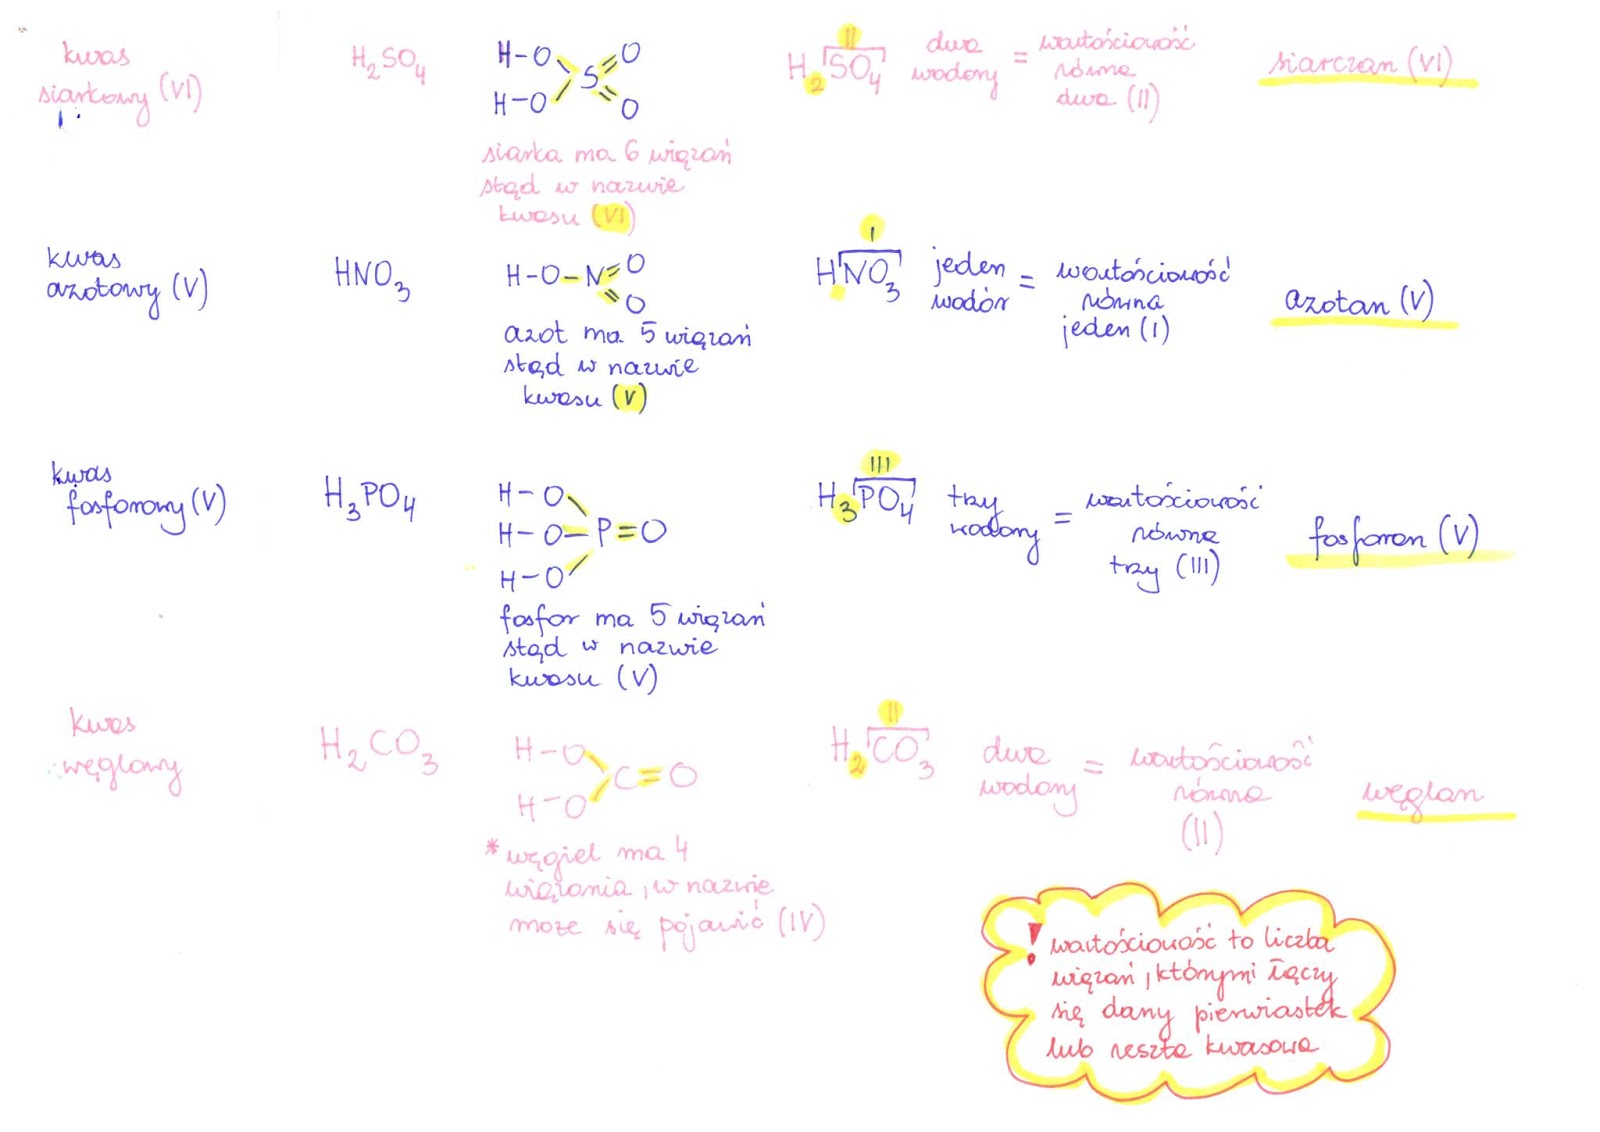 kwas
siarkowy (VI)
H₂SO₄
H-O O
S
H-O O
siarka ma 6 wiązań
stąd w nazwie
kwasu (VI)
II
H₂SO₄
dwa
wodory
=
wartościowość
równa
dwa (II)
siarczan (VI)
kwas
azotowy (V)
HNO₃
H-O-N=O
=O
azot ma 5 wiązań
stąd w nazwie
kwasu (V)
I
HNO₃
jeden
wodór
=
wartościowość
równa
jeden (I)
azotan (V)
kwas
fosforowy (V)
H₃PO₄
H-O
H-O-P=O
H-O
fosfor ma 5 wiązań
stąd w nazwie
kwasu (V)
III
H₃PO₄
trzy
wodory
=
wartościowość
równa
trzy (III)
fosforan (V)
kwas
węglowy
H₂CO₃
H-O
C=O
H-O
* węgiel ma 4
wiązania, w nazwie
może się pojawić (IV)
II
H₂CO₃
dwa
wodory
=
wartościowość
równa
(II)
węglan
! wartościowość to liczba
wiązań, którymi łączy
się dany pierwiastek
lub reszta kwasowa